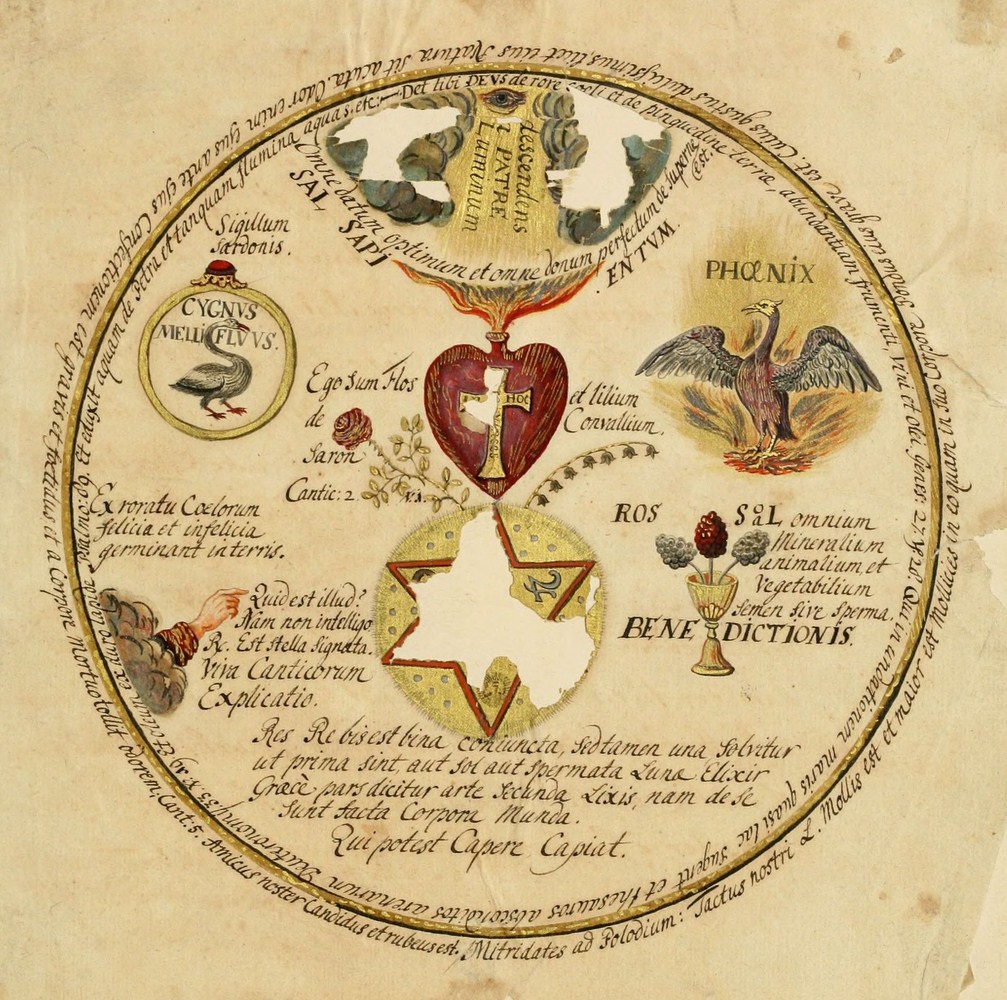 Tactus nostri L. Mollis est et maior est Mollicies in eo quam in Corpore. Pondus ejus grave est. Cuius gustus dulcissimus, licet eius Natura sit acuta. Odor enim Ejus ante ejus Confectionem est gravis et foetidus, et à Corpore mortuo tollit odorem; Cant: 5. Amicus noster Candidus et rubeus est. Mitridates ad Polodium:
Det tibi DEVS de rore coeli et de pinguedine terrae, abundantiam frumenti, Vini et olei Genes: 27. V. 28. Qui inundationem maris quasi lac sugent et thesauros absconditos arenarum Deuteronomij 33.
Et eduxit aquam de Petra et tanquam flumina aquas. etc:
descendens
à PATRE
Luminum
Omne datum optimum et omne donum perfectum de supernè
Est
SAL SAPI ENTVM.
Sigillum
Sardonis.
CYGNVS
MELLIFLVVS.
PHŒNIX
HOC
Ego Sum Flos
de
Saron
Cantic: 2
et lilium
Convallium.
Ex roratu Cœlorum
felicia et infelicia
germinant in terris.
ROS
SAL omnium
Mineralium
animalium, et
Vegetabilium
Semen sive sperma.
BENEDICTIONIS.
Quid est illud?
Nam non intelligo
Rx. Est stella signata.
Viva Canticorum
Explicatio.
Res Rebis est bina Coniuncta, sed tamen una Solvitur
ut prima sint, aut Sol aut Spermata Lunæ Elixir
Græcè pars dicitur arte Secunda Lixis, nam de se
Sunt facta Corpora Munda.
Qui potest Capere, Capiat.